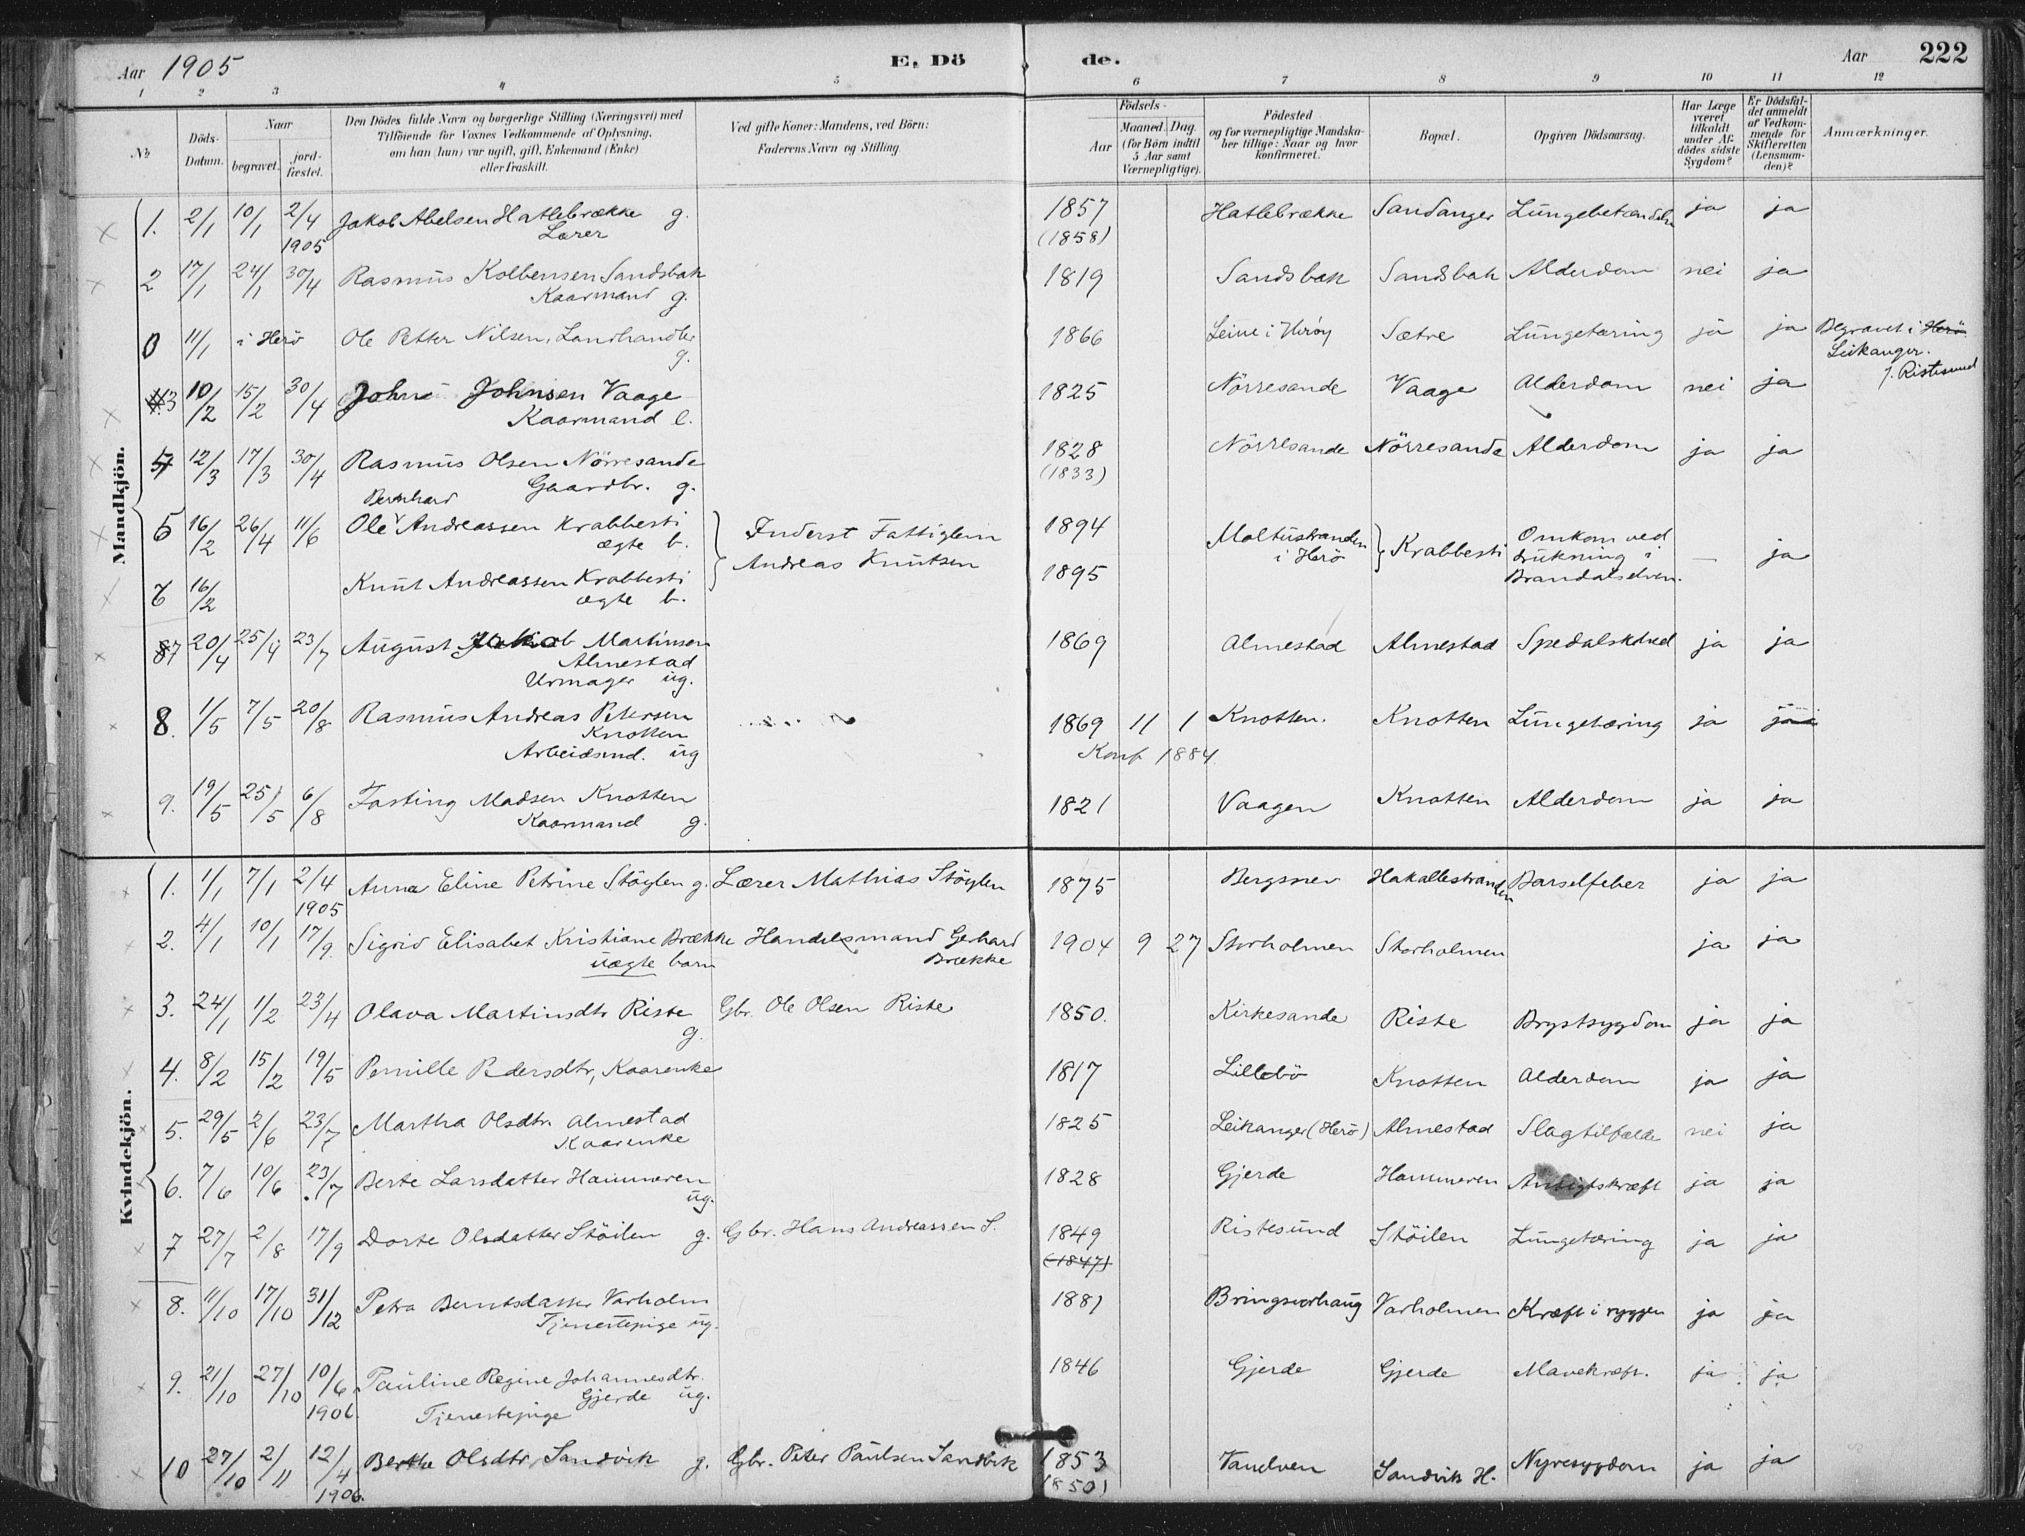 Aar 1905 E. Dö de. Aar 222
1 2 3 4 5 6 7 8 9 10 11 12
No. Döds-Datum. Naar begravet. jordfæstet. Den Dödes fulde Navn og borgerlige Stilling (Næringsvei) med Tilföiende for Voxnes Vedkommende af Oplysning, om han (hun) var ugift, gift, Enkemand (Enke) eller fraskilt. Ved gifte Koner: Mandens, ved Börn: Faderens Navn og Stilling. Födsels- Aar Maaned. Dag. (for Börn indtil 5 Aar samt Værnepligtige). Födested og for værnepligtige Mandskaber tillige: Naar og hvor konfirmeret. Bopæl. Opgiven Dödsaarsag. Har Læge været tilkaldt under Afdödes sidste Sygdom? Er Dödsfaldet anmeldt af Vedkommende for Skifteretten (Lensmanden)? Anmærkninger.
Mandkjön.
1. 2/1 10/1 2/4 1905 Jakob Abelsen Hatlebrække g. 1857 Hatlebrække Sandanger Lungebetændelse ja ja
Lærer (1858)
2 17/1 24/1 30/4 Rasmus Kolbensen Sandsbak 1819 Sandsbak Sandsbak Alderdom nei ja
Kaarmand g.
0 11/1 i Herö Ole Petter Nilsen, Landhandler 1866 Leine i Herøy Sætre Lungetæring ja ja Begravet i Herö
g. Leikanger.
J. Ristesund
3 10/2 15/2 30/4 John Johnsen Vaage 1825 Nörresande Vaage Alderdom nei ja
Kaarmand e.
4 12/3 17/3 30/4 Rasmus Olsen Nörresande 1828 Nörresande Nörresande Alderdom ja ja
Gaardbr. g. (1833)
Bernhard
5 16/2 26/4 11/6 Ole Andreassen Krabbesti Inderst Fattiglem 1894 Moltustranden Krabbesti Omkom ved
ægte b. Andreas Knutsen i Herö drukning i — ja
6 16/2 Knut Andreassen Krabbesti 1895 Brandalselven.
ægte b.
87 20/4 25/4 23/7 August Jakob Martinsen 1869 Almestad Almestad Spedalskhed ja ja
Almestad
Urmager ug.
8. 1/5 7/5 20/8 Rasmus Andreas Petersen 1869 11 1 Knotten. Knotten Lungetæring ja ja
Knotten Konf 1884.
Arbeidsmd. ug
9. 19/5 25/5 6/8 Fasting Madsen Knotten 1821 Vaagen Knotten Alderdom ja ja
Kaarmand g.
Kvindekjön.
1. 1/1 7/1 2/4 1905 Anna Eline Petrine Stöylen g. Lærer Mathias Stöylen 1875 Bergsnev Hakallestranden Barselfeber ja ja
2. 4/1 10/1 17/9. Sigrid Elisabet Kristiane Brække Handelsmand Gerhard 1904 9 27 Storholmen Storholmen ja ja
uægte barn Brække
3. 24/1 1/2 23/4 Olava Martinsdtr Riste Gbr. Ole Olsen Riste 1850. Kirkesande Riste Brystsygdom ja ja
g.
4. 8/2 15/2 19/5 Pernille Pedersdtr, Kaarenke 1817 Lillebö Knotten Alderdom ja ja
5. 29/5 2/6 23/7 Martha Olsdtr. Almestad 1825 Leikanger (Herö) Almestad Slagtilfælde nei ja
Kaarenke
6. 7/6 10/6 23/7 Berte Larsdatter Hammeren 1828 Gjerde Hammeren Ansigtskræft ja ja
ug.
7 27/7 2/8 17/9 Dorte Olsdatter Stöilen g. Gbr. Hans Andreassen S. 1849 Ristesund Stöilen Lungetæring ja ja
(1847)
8. 11/10 17/10 31/12 Petra Berntsdatter Varholm 1881 Bringsvorhaug Varholmen Kræft i ryggen ja ja
Tjenestepige ug.
9. 21/10 27/10 10/6 1906. Pauline Regine Johannesdtr. 1846 Gjerde Gjerde Mavekræft. ja ja
Gjerde ug.
Tjenestepige
10 27/10 2/11 12/4 1906. Berthe Olsdtr. Sandvik g. Gbr. Peter Paulsen Sandvik 1853 Vandven Sandvik H. Nyresygdom ja ja
1850)